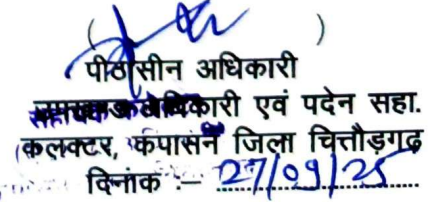 (                    )
पीठासीन अधिकारी
अधिकारी एवं पदेन सहा.
कलक्टर, कपासन जिला चित्तौड़गढ़
दिनांक :- 27/09/25